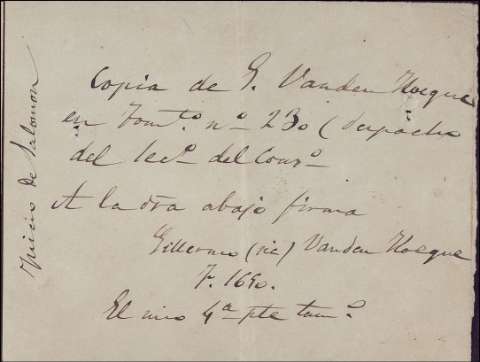 Copia de G. Vanden Hoeque
en Tomto. no. 230 (despacho
del Secro. del Conso.
A la dra abajo firma
Gillermo (sic) Vanden Hoeque
F. 1690.
El mio 4a pte tamo.
Juicio de Salomon